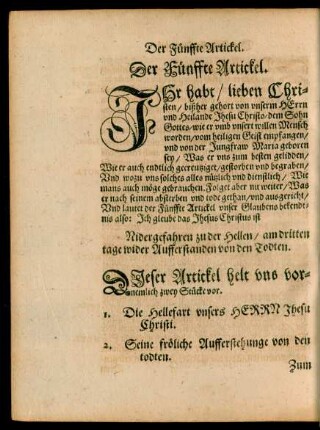 Der Fünffte Artickel.
Der Fünffte Artickel.
IHr habt / lieben Chri-
sten / bißher gehort von vnserm HErrn
vnd Heilande Jhesu Christo / dem Sohn
Gottes / wie er vmb vnsert willen Mensch
worden / vom heiligen Geist empfangen /
vnd von der Jungfraw Maria geboren
sey / Was er vns zum besten gelidden /
Wie er auch endtlich gecreutziget / gestorben vnd begraben /
Vnd wozu vns solches alles nützlich vnd dienstlich / Wie
mans auch möge gebrauchen. Folget aber nu weiter / Was
er nach seinem absterben vnd tode gethan / vnd ausgericht /
Vnd lautet der Fünffte Artickel vnser Glaubens bekendt-
nis also: Ich gleube das Jhesus Christus ist
Nidergefahren zu der Hellen / am dritten
tage wider Aufferstanden von den Todten.
DIeser Artickel helt vns vor-
nemlich zwey Stücke vor.
1. Die Hellefart vnsers HERRN Jhesu
Christi.
2. Seine fröliche Aufferstehunge von den
todten.
Zum